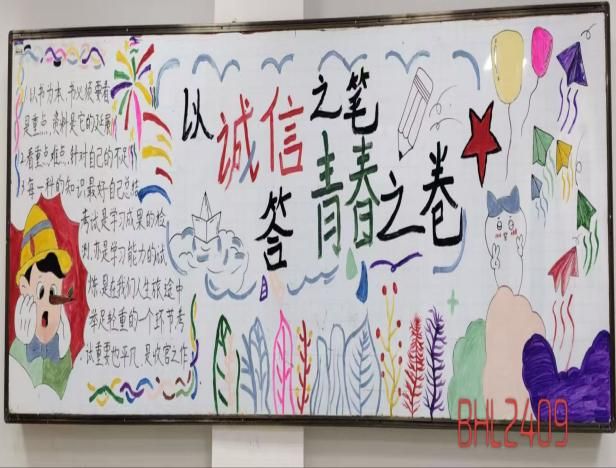 以诚信之笔
答青春之卷
1.以书为本,书必须要看
是重点,资料是它的延展
2.看重点,难点,针对自己的不足
3.每一种的知识最好自己总结
考试是学习成果的检
测,亦是学习能力的试
炼,是在我们人生旅途中
举足轻重的一个环节考
试重要也平凡,是收官之作
BHL2409